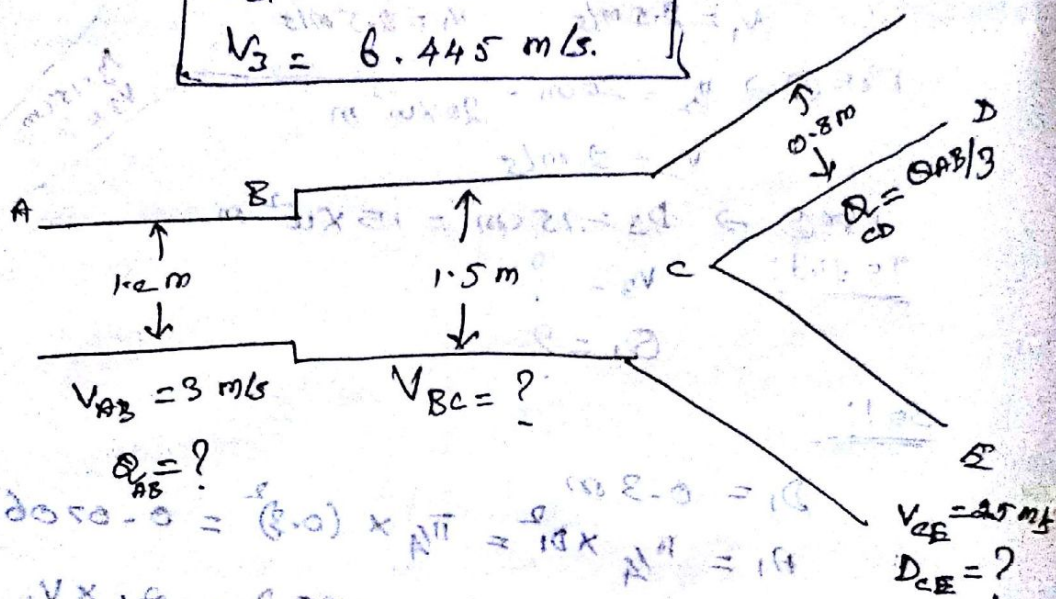 V3 = 6.445 m/s.
A
B
1.2 m
1.5 m
0.8 m
D
Q_CD = Q_AB/3
C
V_AB = 3 m/s
V_BC = ?
Q_AB = ?
E
V_CE = 2.5 m/s
D_CE = ?